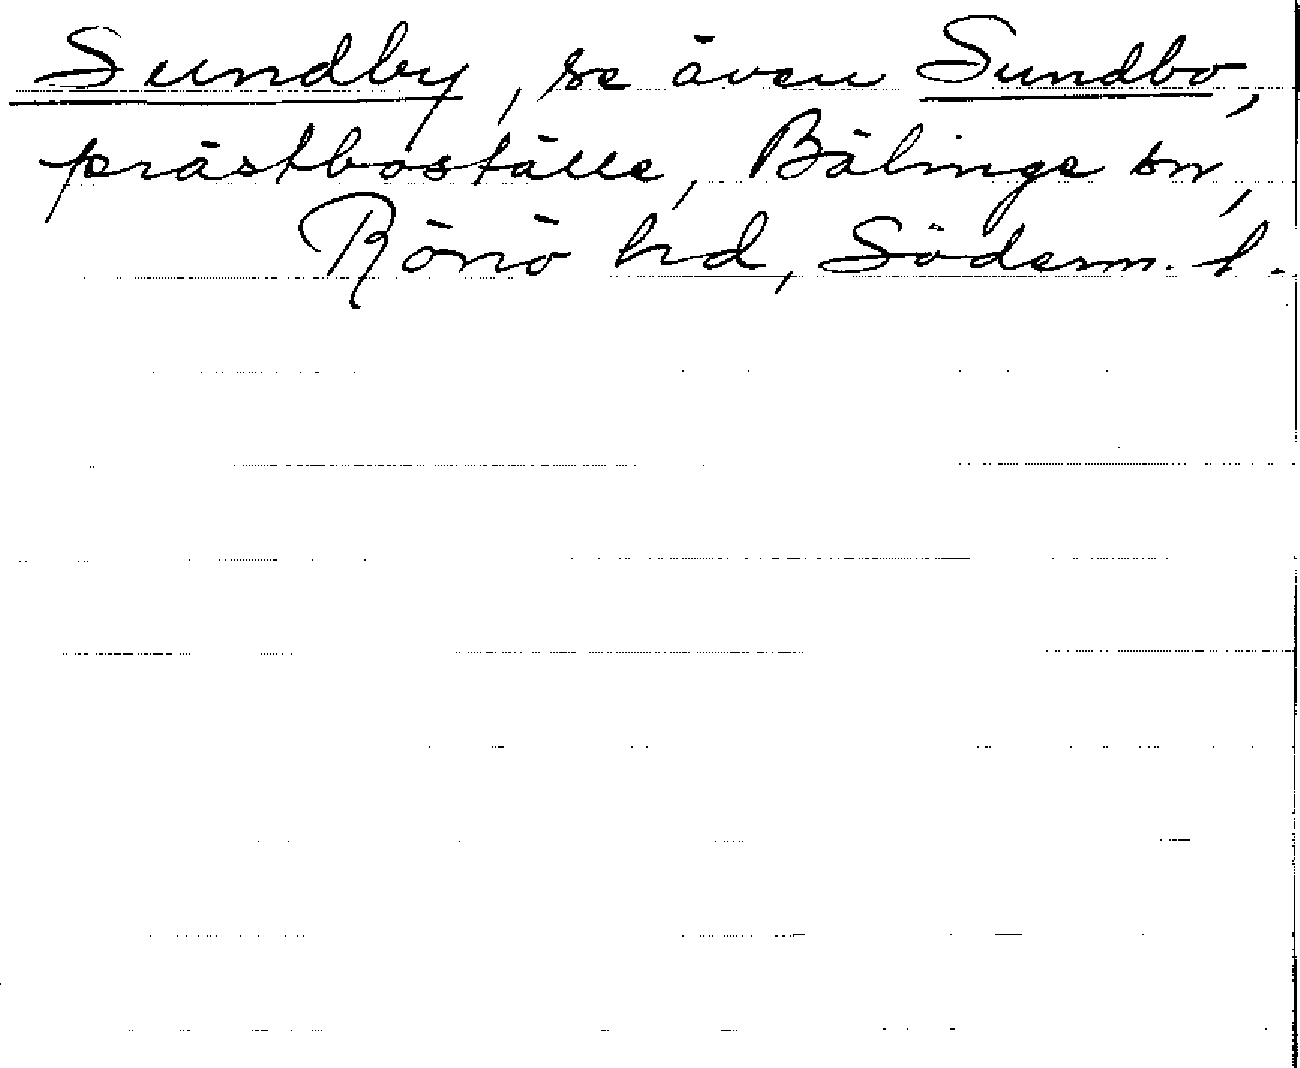 Sundby, se även Sundbo,
prästboställe, Bälinge sn,
Rönö hd, Söderm. l.